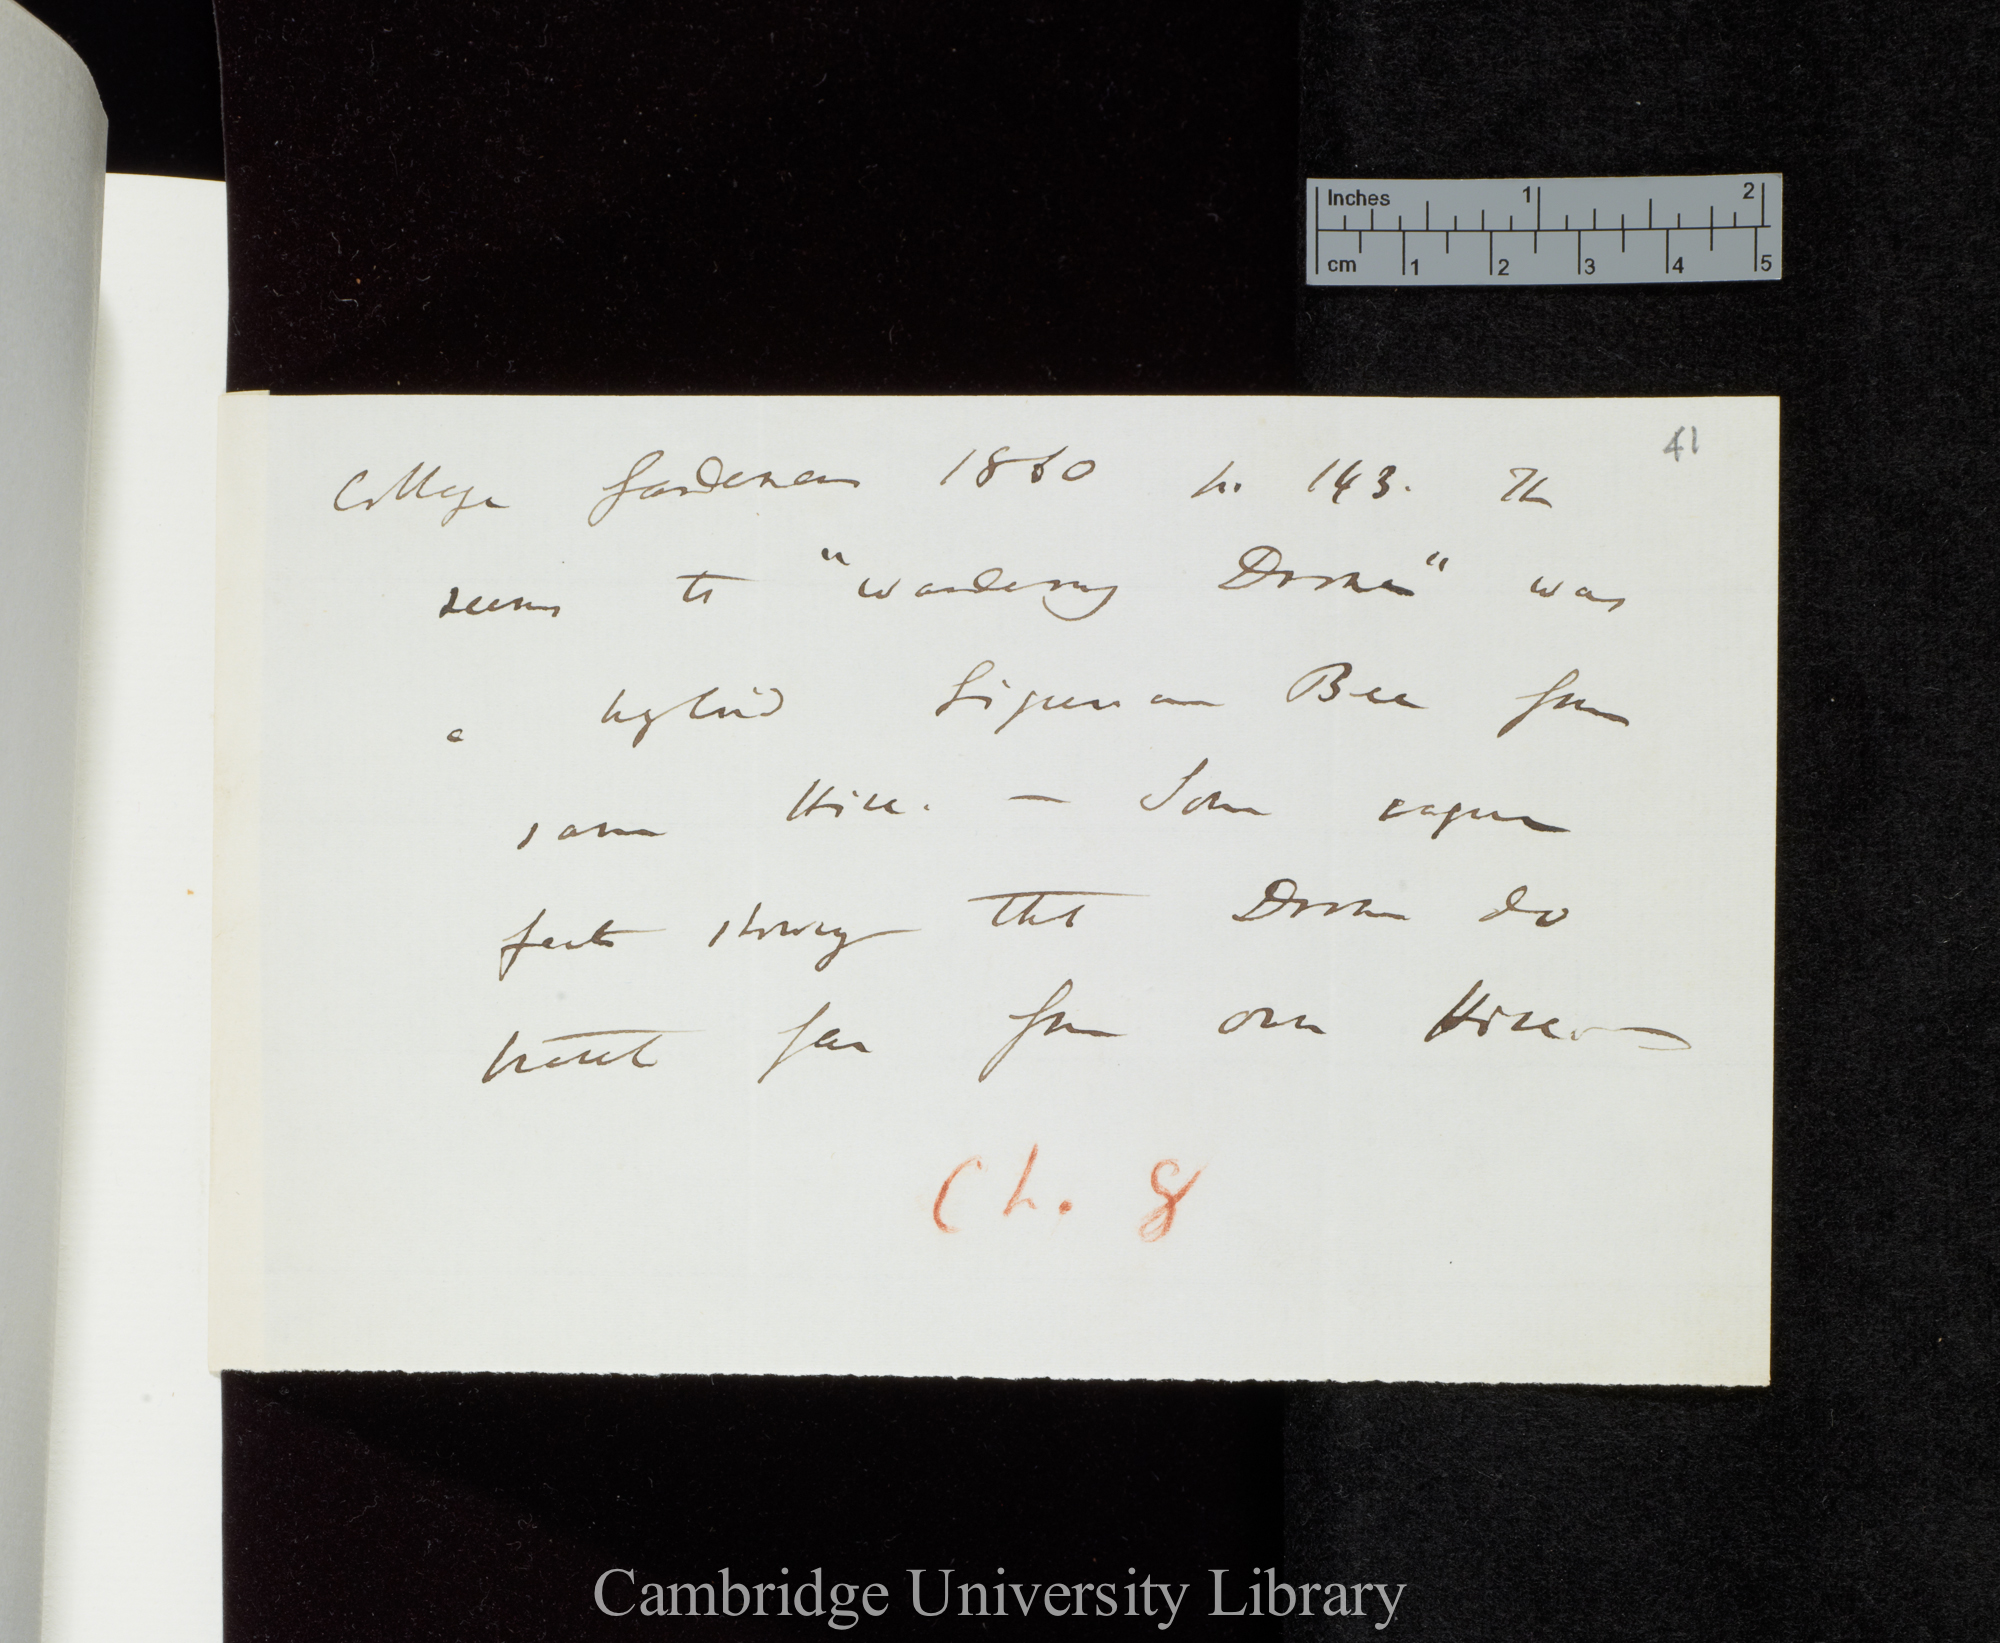 Inches 1 2
cm 1 2 3 4 5
41
Cottage Gardener 1860 p. 143. The
seems to "wandering Drones" was
a hybrid Ligurian Bee from
same Hive. — Some vague
facts showing that Drones do
travel far from own Hive. —
Ch. 8
Cambridge University Library